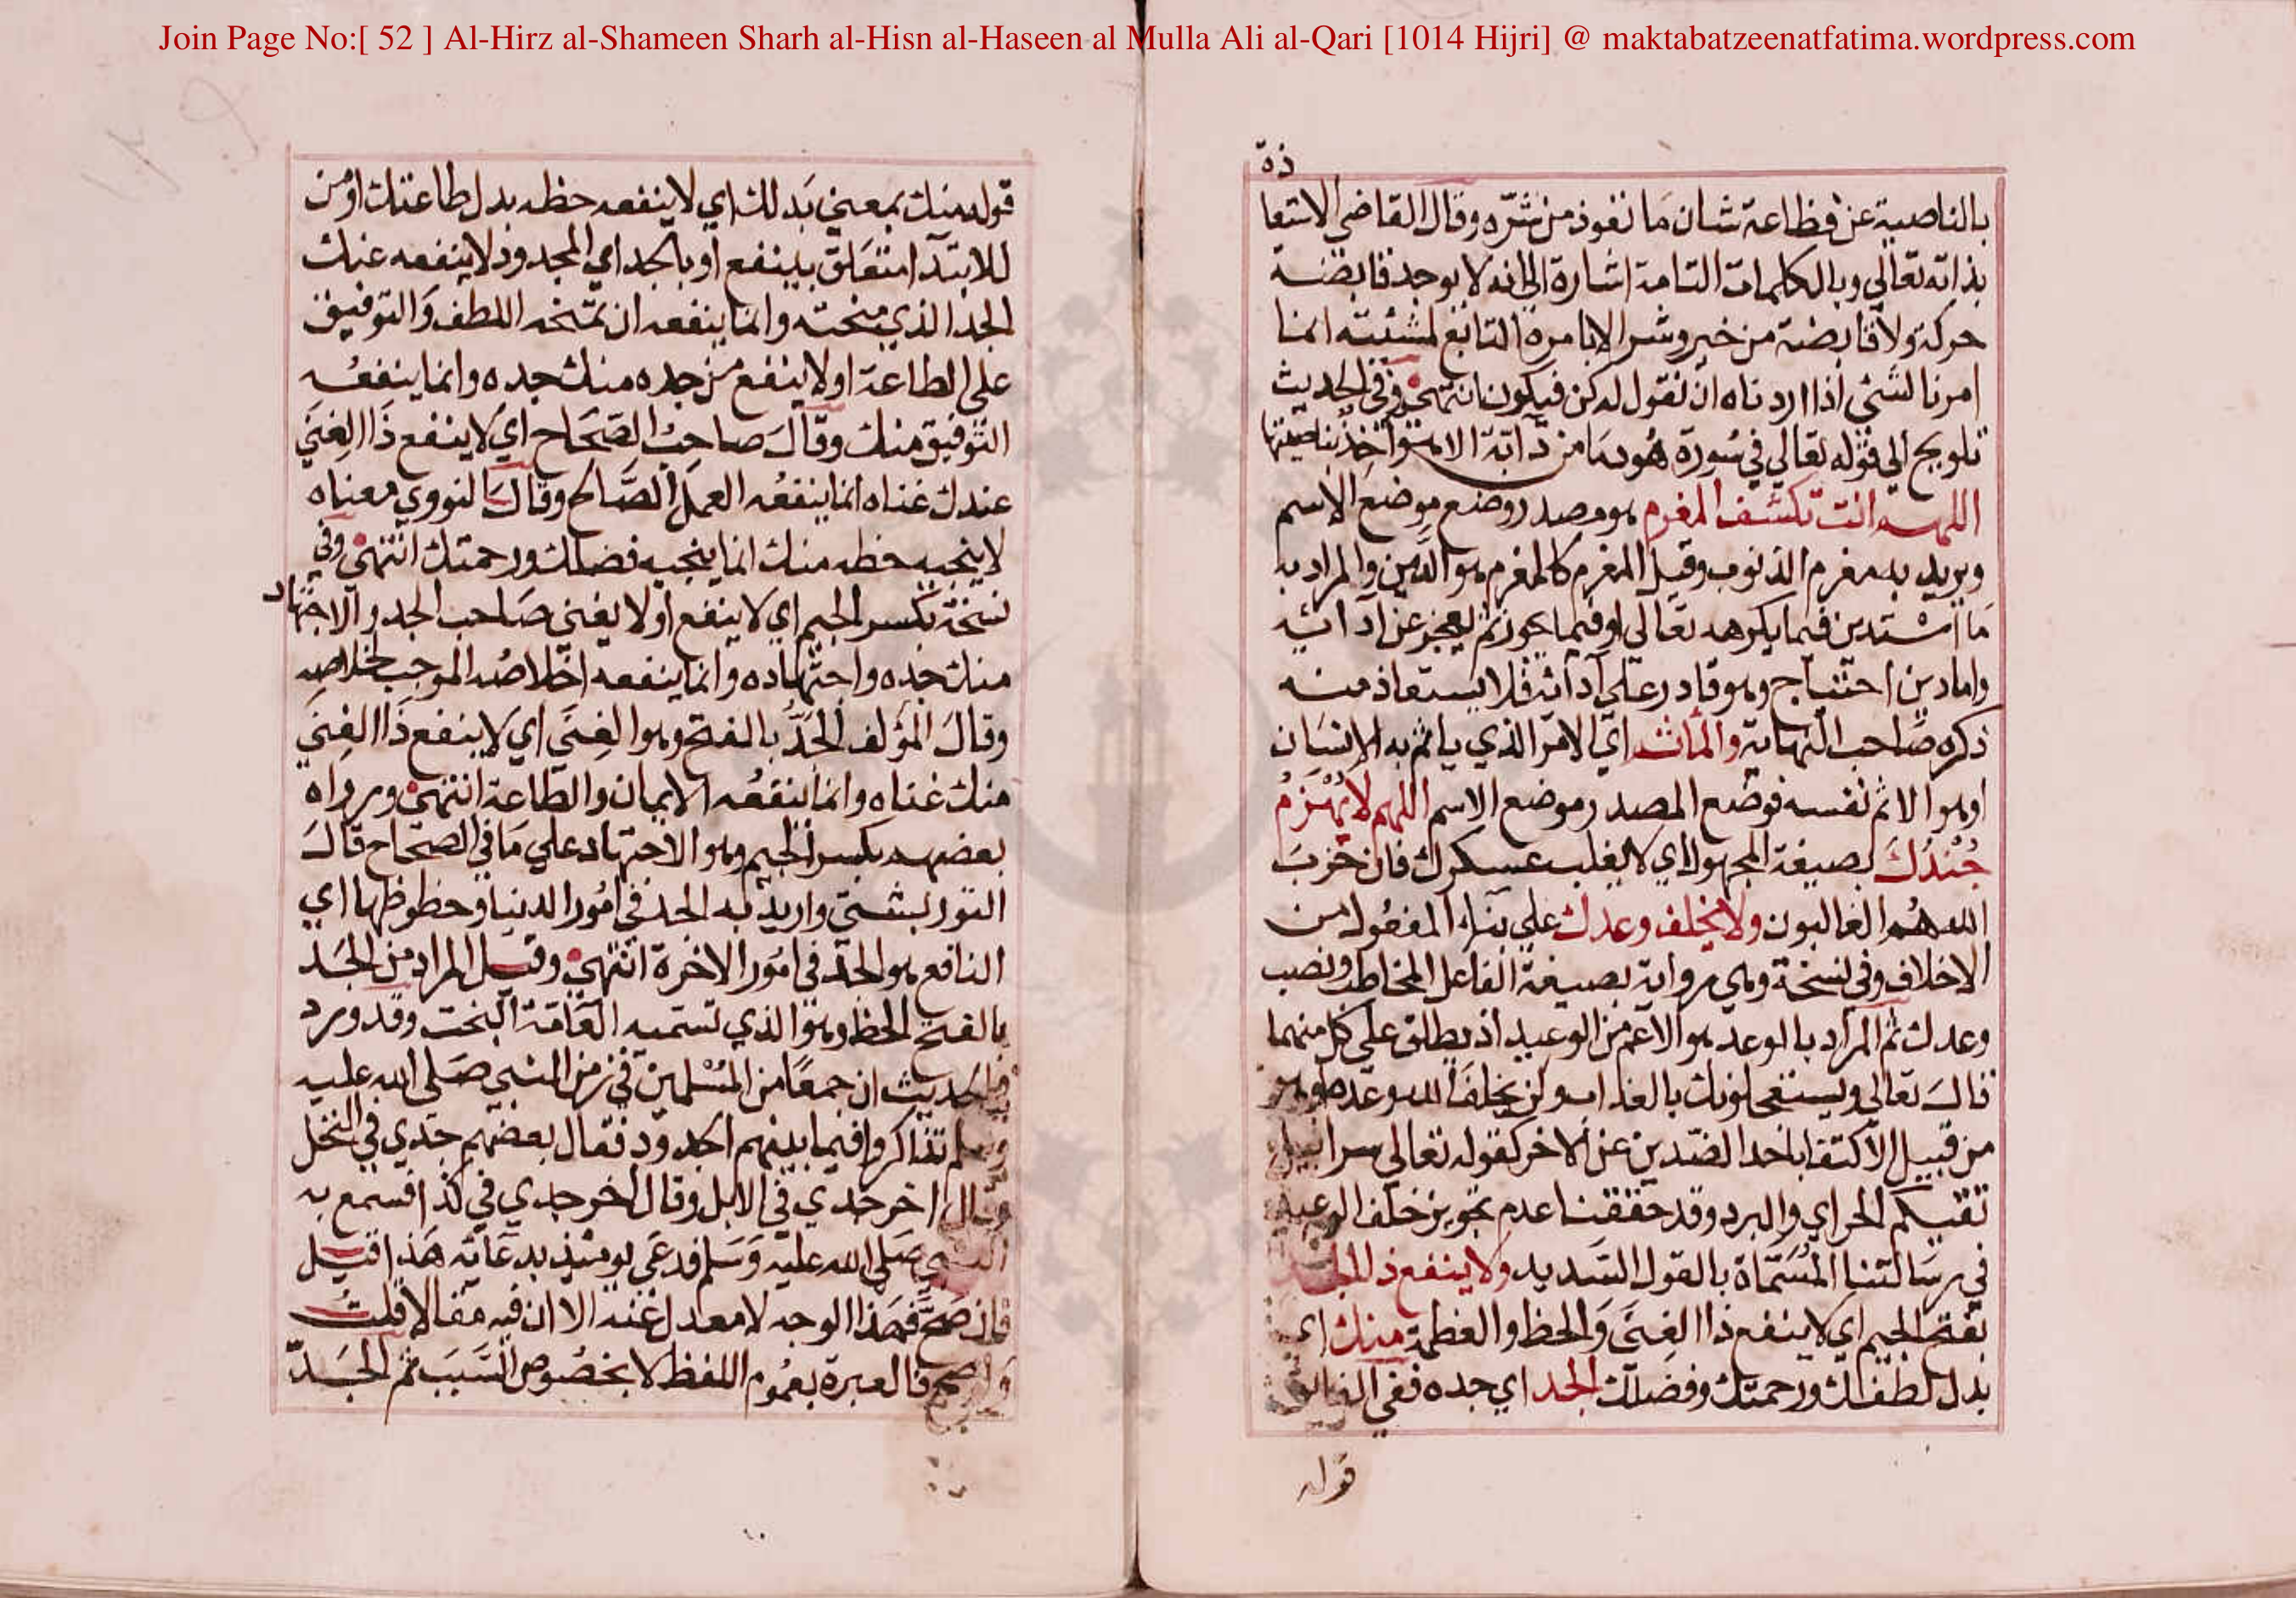 Join Page No:[ 52 ] Al-Hirz al-Shameen Sharh al-Hisn al-Haseen al Mulla Ali al-Qari [1014 Hijri] @ maktabatzeenatfatima.wordpress.com
ذة
بالناصية عن فظاعة شان ما تعوذ من شره وقال القاضي الاستعا
بذاته تعالي وبالكلمات التامة اشارة الي انه لا يوجد قابضة
حركة ولا قابضة من خير وشر الا بامره التابع لمشيئته انما
امرنا لشئ اذا اردناه ان نقول له كن فيكون انتهي وفي الحديث
تلويح الي قوله تعالي في سورة هود ما من دآبة الا هو آخذ بناصيتها
اللهم انت تكشف المغرم هو مصدر وضع موضع الاسم
ويريد به مغرم الذنوب وقيل المغرم كالمغرم هو الدين والمراد به
ما استدين فيما يكرهه تعالي او فيما يجوز ثم يعجز عن ادائه
واما دين احتياج وهو قادر علي ادائه فلا يستعاذ منه
ذكره صاحب النهاية والمأثم اي الامر الذي ياثم به الانسان
او هو الاثم نفسه فوضع المصدر موضع الاسم اللهم لا يُهْزَمُ
جُنْدُكَ بصيغة المجهول اي لا يغلب عسكرك فان حزب
الله هُم الغالبون ولا يخلف وعدك علي بناء المفعول من
الاخلاف وفي نسخة وهي رواية بصيغة الفاعل المخاطب ونصب
وعدك ثم المراد بالوعد هو الاعم من الوعيد اذ يطلق علي كل منهما
قال تعالي ويستعجلونك بالعذاب ولن يخلف الله وعده وهو
من قبيل الاكتفا باحد الضدين عن الاخر كقوله تعالي سرابيل
تقيكم الحر اي والبرد وقد حققنا عدم تجويز خلف الوعيد
في رسالتنا المُسَمّاة بالقول السديد ولا ينفع ذا الجد
بفتح الجيم اي لا ينفع ذا الغِنَي وَالحظ والعظمة منك اي
بدل لطفك ورحمتك وفضلك الجد اي جده ففي
قوله
قوله منك بمعني بَدلك اي لا ينفعه حظه بدل طاعتك او من
للابتدآ متعَلق بينفع او بالجد اي المجدود لا ينفعه عنك
الجد الذي منحته وانما ينفعه ان تمنحه اللطف وَالتوفيق
علي الطاعة او لا ينفع من جده منك جده وانما ينفعُه
التوفيق منك وقالَ صاحِبُ الصَحَاح اي لا ينفع ذَا الغِنَي
عندك غناه انما ينفعُه العمل الصَّالح وقالَ النووي معناه
لا ينجيه حظه منك انما ينجيه فضلك ورحمتك انتهي وفي
نسخة بكسر الجيم اي لا ينفع او لا يغني صَاحب الجد والاجتهاد
منك جده واجتهاده وانما ينفعه اخلاصُه الموجب لخلاصِه
وقالَ المؤلف الجَدُّ بالفتح وهو الغِنَي اي لا ينفع ذَا الغِنَي
منك غناه وانما ينفعُه الايمان والطاعة انتهي ورواه
بعضهم بكسر الجيم وهو الاجتهاد علي مَا في الصحاح قالَ
التوربشتي واريد به الجد في امُور الدنيا وحظوظها اي
النافع هو الجد في امُور الاخرة انتهي وقيل المراد من الجَد
بالفتح الحظ وهو الذي تسميه العَامّة البخت وقد ورد
في الحديث ان جمعًا من المُسْلمين في زمن النبي صَلي الله عليه
وسلم تذاكروا فيما بينهم الجدود فقال بعضهم جَدي في النخل
وقال اخر جدي في الابل وقال اخر جدي في كذا فسمع به
النبي صَلي الله عليه وَسَلم فدعَي يومئذ بدعَائه هَذا قيل
فان صَحَّ فهَذا الوجه لا معدل عَنه الا ان فيه مقالا قلتُ
وَان صح فالعبرة بعُموم اللفظ لا بخصُوص السَبَب ثم الجَدّ